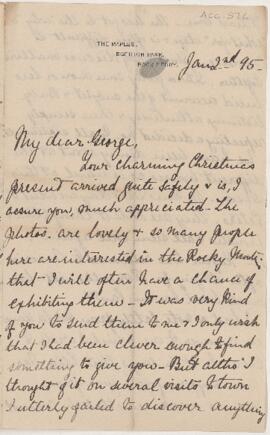 Acc. 526
THE MAPLES,
PARK,
Jan 2nd 95.
My dear George,
Your charming Christmas
present arrived quite safely & is, I
assure you, much appreciated - The
photos. are lovely & so many people
here are interested in the Rocky Mountns.
that I will often have a chance of
exhibiting them - It was very kind
of you to send them to me & I only wish
that I had been clever enough to find
something to give you - But altho' I
thought of it on several visits to town
I utterly failed to discover anything